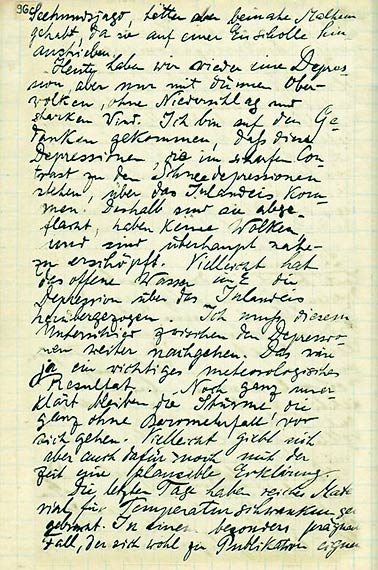 96
Seehundsjagd, hätten aber beinahe Malheur
gehabt, da sie auf einer Eisscholle hin-
austrieben.
Heute haben wir wieder eine Depres-
sion, aber nur mit dünnen Ober-
wolken, ohne Niederschlag und
starken Wind. Ich bin auf den Ge-
danken gekommen, daß diese
Depressionen, die im scharfen Con-
trast zu den Schneedepressionen
stehen, über das Inlandeis kom-
men. Deshalb sind sie abge-
flacht, haben keine Wolken,
und sind überhaupt nahe-
zu erschöpft. Vielleicht hat
das offene Wasser im E die
Depression über das Inlandeis
herübergezogen. Ich muß diesem
Unterschied zwischen den Depressio-
nen weiter nachgehen. Das wäre
ja ein wichtiges meteorologisches
Resultat. Noch ganz uner-
klärt bleiben die Stürme, die
ganz ohne Barometerfall vor
sich gehen. Vielleicht giebt sich
aber auch dafür noch mit der
Zeit eine plausible Erklärung.
Die letzten Tage haben reiches Mate-
rial für Temperaturschwankungen
gebracht. In einem besonders prägnan
Fall, der sich wohl zur Publikation eignen